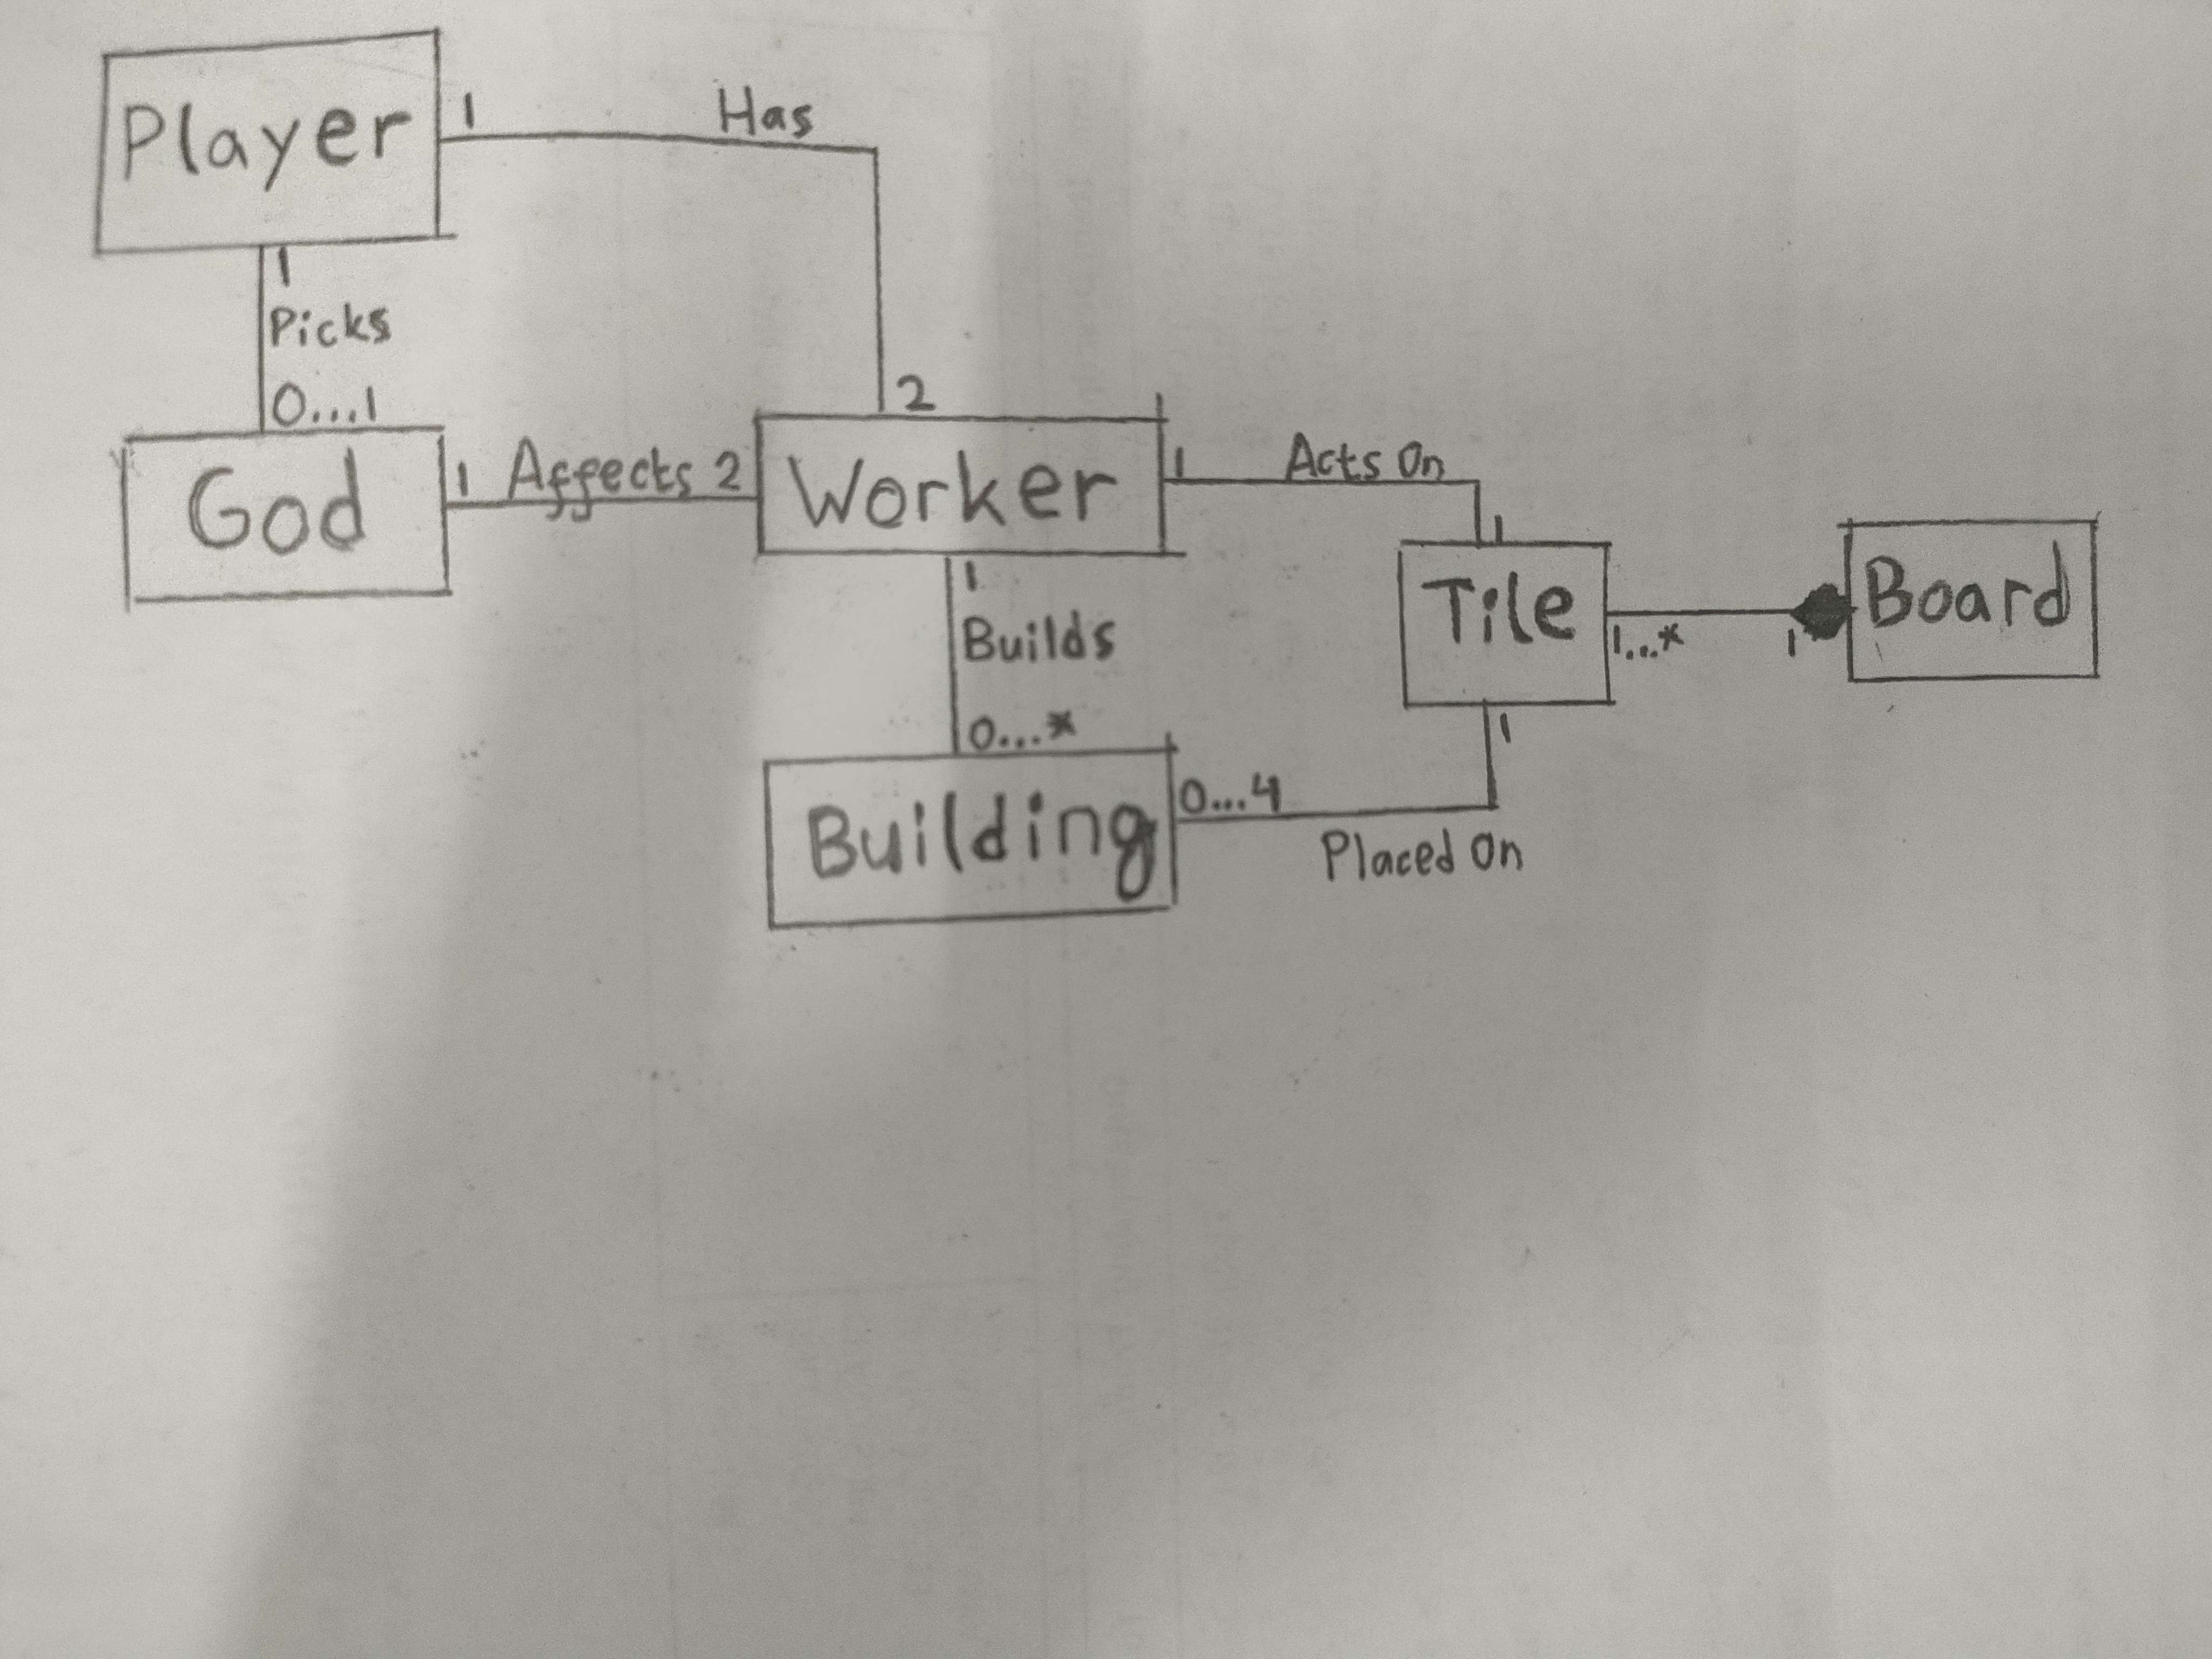 Player
1
Has
1
Picks
0...1
2
God
1 Affects 2
Worker
1
Acts On
1
Tile
1...*
1
Board
1
Builds
0...*
1
Building
0...4
Placed On